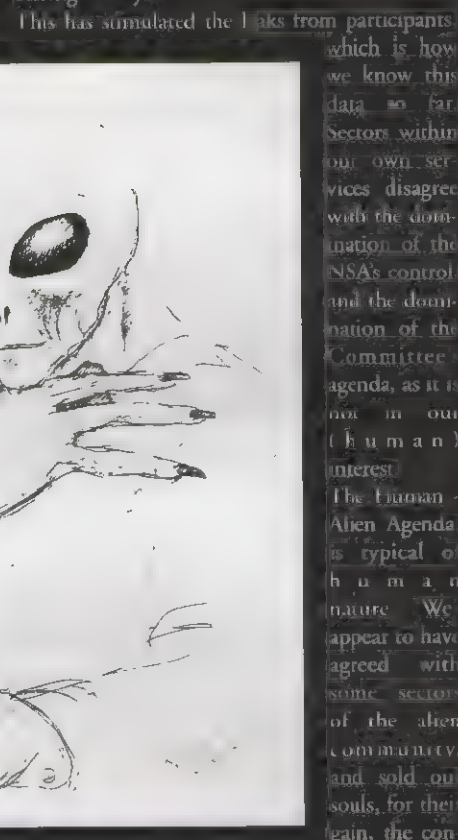 This has stimulated the l aks from participants
which is how
we know this
data so far.
Sectors within
our own ser-
vices disagree
with the dom-
ination of the
NSA's control
and the domi-
nation of the
Committee s
agenda, as it is
not in our
(human)
interest.
The Human -
Alien Agenda
is typical of
human
nature We
appear to have
agreed with
some sectors
of the alien
community,
and sold our
souls, for their
gain, the con